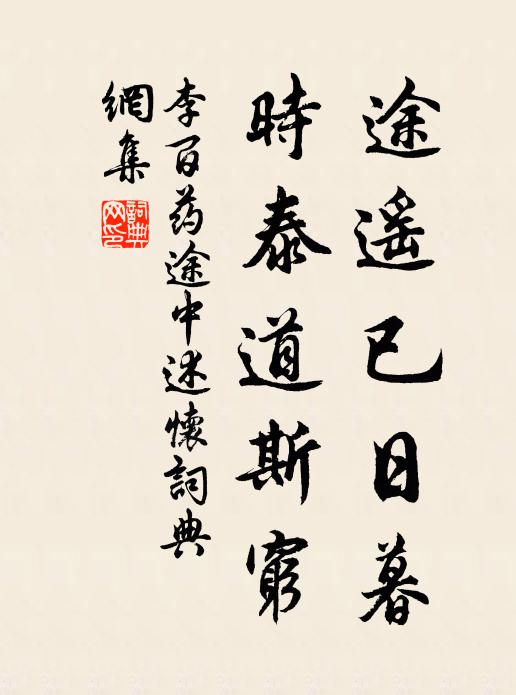 途遥已日暮
時泰道斯窮
李百药途中述懷詞典
網集
詞典
网印